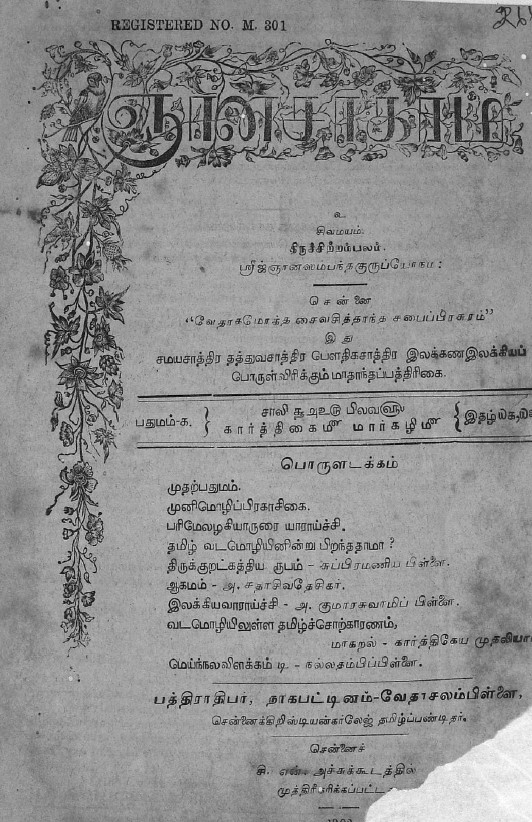 REGISTERED NO. M. 301
ஞானசாகரம்
உ
சிவமயம்.
திருச்சிற்றம்பலம்.
ஸ்ரீஜ்ஞானஸம்பந்தகுருப்யோநம:
சென்னை
“வேதாகமோக்த சைவசித்தாந்த சபைப்பிரசுரம்”
இது
சமயசாத்திர தத்துவசாத்திர பௌதிகசாத்திர இலக்கணஇலக்கியப்
பொருள்விரிக்கும்மாதாந்தப்பத்திரிகை.
பதுமம்-க. } சாலி பிலவ௵ { இதழ்
கார்த்திகை௴ மார்கழி௴
பொருளடக்கம்
முதற்பதுமம்.
முனிமொழிப்பிரகாசிகை.
பரிமேலழகியாருரை யாராய்ச்சி.
தமிழ் வடமொழியினின்று பிறந்ததாமா ?
திருக்குறட்கத்திய ரூபம் - சுப்பிரமணிய பிள்ளை.
ஆகமம் - அ. சதாசிவதேசிகர்.
இலக்கியவாராய்ச்சி - அ. குமாரசுவாமிப் பிள்ளை.
வடமொழியிலுள்ள தமிழ்ச்சொற்காரணம்,
மாகறல் - கார்த்திகேய முதலியா
மெய்ந்நலவிளக்கம் டி - நல்லதம்பிப்பிள்ளை.
பத்திராதிபர், நாகபட்டினம்-வேதாசலம்பிள்ளை,
சென்னைக்கிறிஸ்டியன்காலேஜ் தமிழ்ப்பண்டிதர்.
சென்னைச்
சி. என். அச்சுக்கூடத்தில்